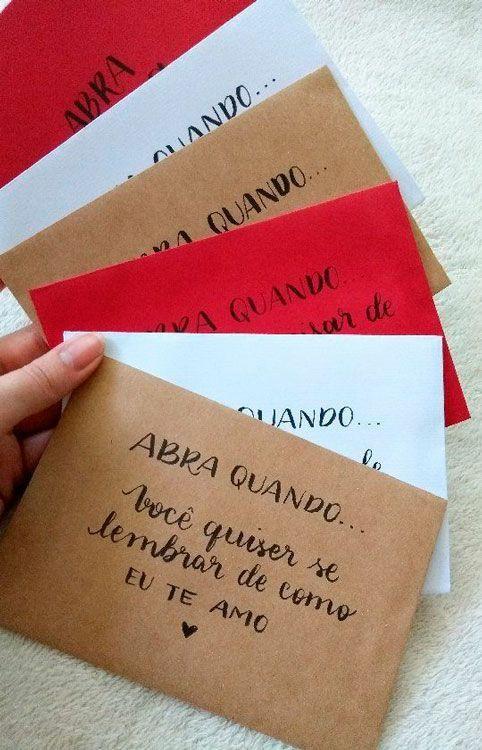 ABRA
QUANDO...
ABRA QUANDO...
ABRA QUANDO...
quisar de
QUANDO...
de
ABRA QUANDO...
Você quiser se
lembrar de como
EU TE AMO
♥